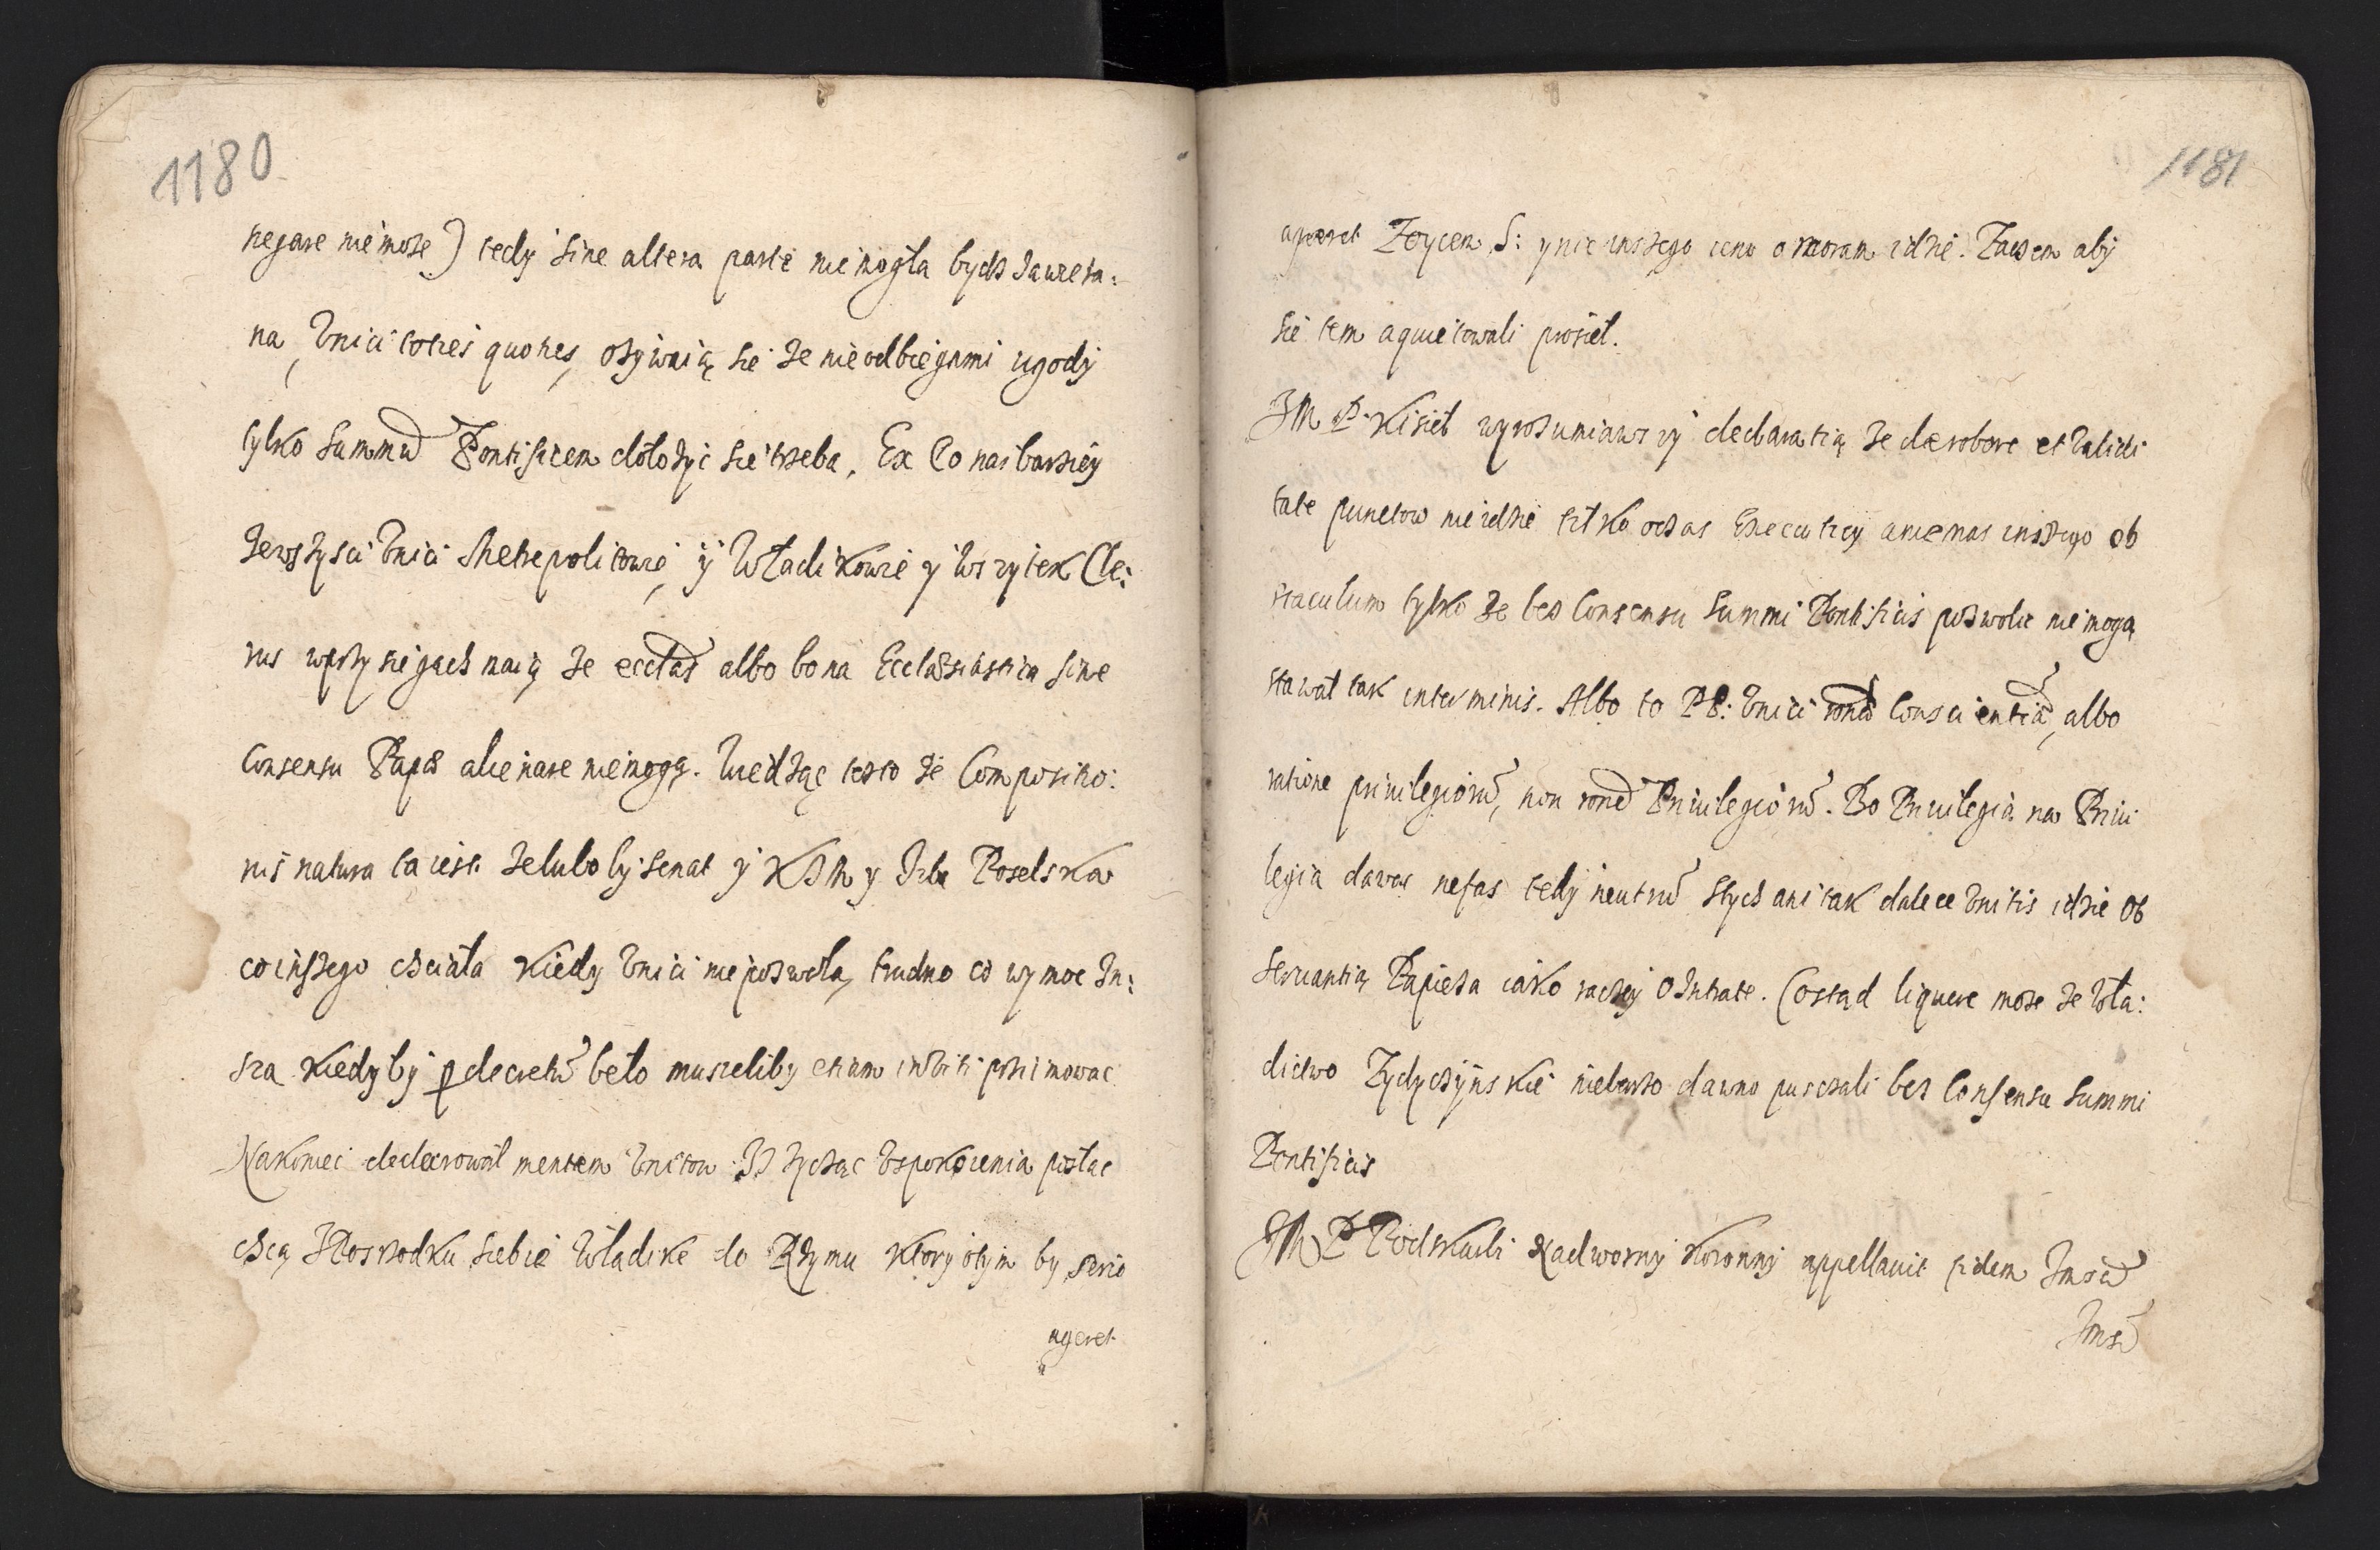 1180
negare niemoże) tedy sine altera parte niemogła bydz zawreta:
na, Unici toties quoties, ozywaią sie ze nieodbiegami ugody
tylko summū Pontificem dołozyc sie trzeba. Ex Eo naibarziey
ze wszysci Unici Metropolitowie, y Władikowie y wszytek Cle:
rus wprzysięgach maią ze eccłas albo bona Ecclesiastica sine
Consensu Papæ alienare niemogą. Wiedząc tezto ze Compositio:
nis natura ta iest. Zelubo by Senat y KJM y Izba Poselska
coinszego chciała kiedy Unici niepozwolą, trudno co wymoc In:
sza kiedyby p decretū beło musieliby etiam inviti przimowac
Nakoniec declarował mentem Unitow. Iz zycząc Uspokoienia posłac
chcą Zposrzodku siebie Władike do Rzymu ktory otym by serio
ageret
1181
ageret Zoycem S: y nic inszego ieno o moram idzie. Zaczem aby
sie tem aquietowali prosieł.
JM P. Kisiel wyrozumiawszy declaratią ze de robore et Validi
tate punctow nieidzie tilko oczas Executiey aniemasz inszego ob
staculum tylko ze bez Consensu Summi Pontificis pozwolic niemogą
stawał tak interminis. Albo to PP: Unici rōnē Conscientiæ, albo
ratione priuilegiorū, non rōnē Priuilegiorū. Bo Priuilegia na Priui
legia dawac nefas tedy neutrū ztych ani tak dalece Unitis idzie Ob
seruantią Papieża iako raczey o Intrate. Costąd liquere może ze Wła:
dictwo Zydyczyńskie niebarzo dawno pusczali bez Consensu Summi
Pontificis
JM P Podskarbi Nadworny Koronny appellauit fidem Jmsci
Jmsci